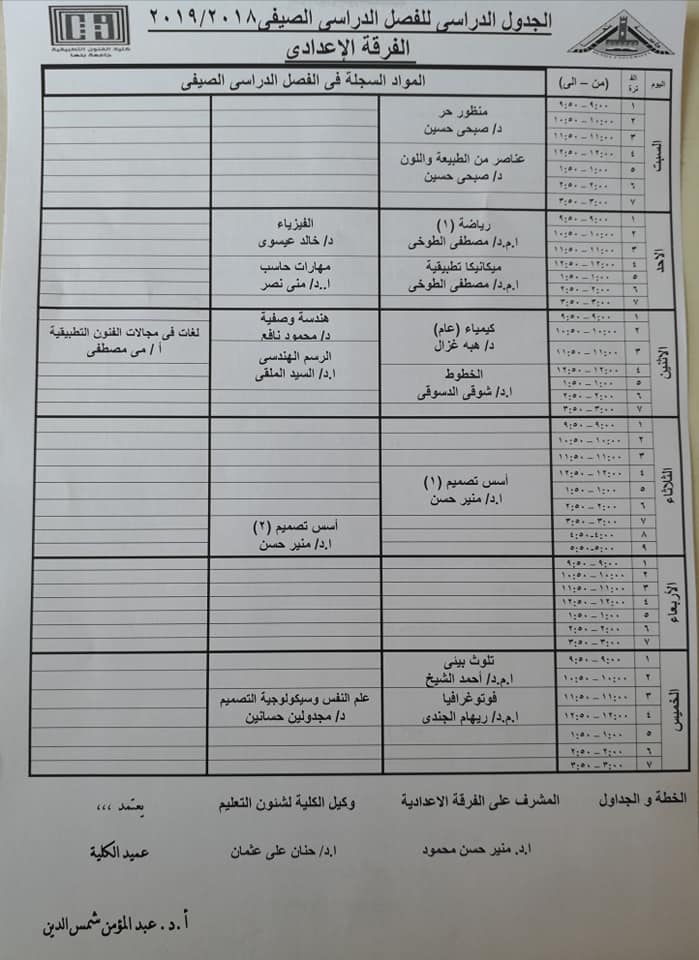 الجدول الدراسى للفصل الدراسى الصيفى ٢٠١٩/٢٠١٨
الفرقة الإعدادى
كلية الفنون التطبيقية
جامعة بنها
اليوم
الفترة
(من – الى)
المواد السجلة فى الفصل الدراسى الصيفى
السبت
١ ٩:٠٠ – ٩:٥٠
٢ ١٠:٠٠ – ١٠:٥٠
٣ ١١:٠٠ – ١١:٥٠
٤ ١٢:٠٠ – ١٢:٥٠
٥ ١:٠٠ – ١:٥٠
٦ ٢:٠٠ – ٢:٥٠
٧ ٣:٠٠ – ٣:٥٠
منظور حر
د/ صبحى حسين
عناصر من الطبيعة واللون
د/ صبحى حسين
الاحد
١ ٩:٠٠ – ٩:٥٠
٢ ١٠:٠٠ – ١٠:٥٠
٣ ١١:٠٠ – ١١:٥٠
٤ ١٢:٠٠ – ١٢:٥٠
٥ ١:٠٠ – ١:٥٠
٦ ٢:٠٠ – ٢:٥٠
٧ ٣:٠٠ – ٣:٥٠
رياضة (١)
ا.م.د/ مصطفى الطوخى
ميكانيكا تطبيقية
ا.م.د/ مصطفى الطوخى
الفيزياء
د/ خالد عيسوى
مهارات حاسب
ا..د/ منى نصر
الاثنين
١ ٩:٠٠ – ٩:٥٠
٢ ١٠:٠٠ – ١٠:٥٠
٣ ١١:٠٠ – ١١:٥٠
٤ ١٢:٠٠ – ١٢:٥٠
٥ ١:٠٠ – ١:٥٠
٦ ٢:٠٠ – ٢:٥٠
٧ ٣:٠٠ – ٣:٥٠
كيمياء (عام)
د/ هبه غزال
الخطوط
ا.د/ شوقى الدسوقى
هندسة وصفية
د/ محمود نافع
الرسم الهندسى
ا.د/ السيد الملقى
لغات فى مجالات الفنون التطبيقية
أ / مى مصطفى
الثلاثاء
١ ٩:٠٠ – ٩:٥٠
٢ ١٠:٠٠ – ١٠:٥٠
٣ ١١:٠٠ – ١١:٥٠
٤ ١٢:٠٠ – ١٢:٥٠
٥ ١:٠٠ – ١:٥٠
٦ ٢:٠٠ – ٢:٥٠
٧ ٣:٠٠ – ٣:٥٠
٨ ٤:٠٠-٤:٥٠
٩ ٥:٠٠-٥:٥٠
أسس تصميم (١)
ا.د/ منير حسن
أسس تصميم (٢)
ا.د/ منير حسن
الأربعاء
١ ٩:٠٠ – ٩:٥٠
٢ ١٠:٠٠ – ١٠:٥٠
٣ ١١:٠٠ – ١١:٥٠
٤ ١٢:٠٠ – ١٢:٥٠
٥ ١:٠٠ – ١:٥٠
٦ ٢:٠٠ – ٢:٥٠
٧ ٣:٠٠ – ٣:٥٠
الخميس
١ ٩:٠٠ – ٩:٥٠
٢ ١٠:٠٠ – ١٠:٥٠
٣ ١١:٠٠ – ١١:٥٠
٤ ١٢:٠٠ – ١٢:٥٠
٥ ١:٠٠ – ١:٥٠
٦ ٢:٠٠ – ٢:٥٠
٧ ٣:٠٠ – ٣:٥٠
تلوث بيئى
ا.م.د/ أحمد الشيخ
فوتوغرافيا
ا.م.د/ ريهام الجندى
علم النفس وسيكولوجية التصميم
د/ مجدولين حسانين
الخطة و الجداول
المشرف على الفرقة الاعدادية
وكيل الكلية لشئون التعليم
يعتمد ،،،
ا.د. منير حسن محمود
ا.د/ حنان على عثمان
عميد الكلية
أ.د. عبد المؤمن شمس الدين